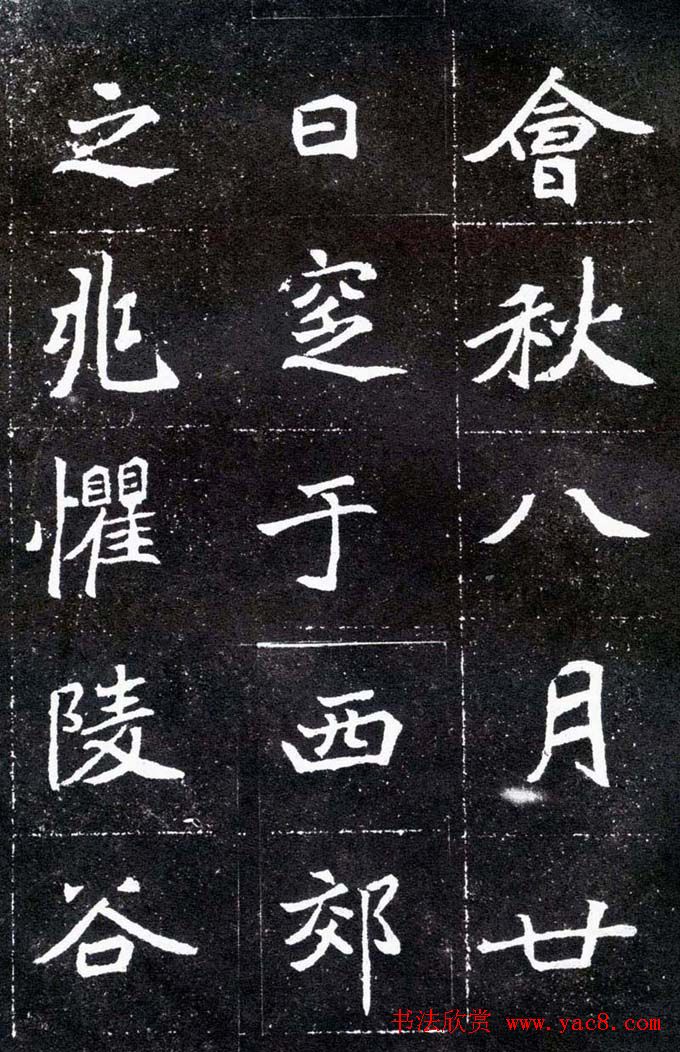 會秋八月廿
日窆于西郊
之兆懼陵谷
书法欣赏 www.yac8.com